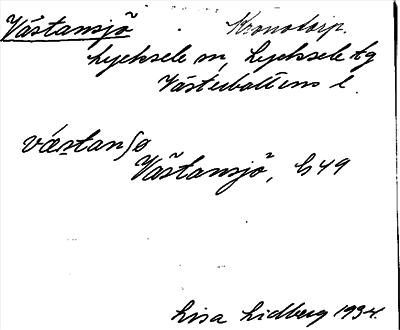 Västansjö Kronotorp.
Lycksele sn, Lycksele tg
Västerbottens l.
væstanʃø
Västansjö, b 49
Lisa Lidberg 1934.